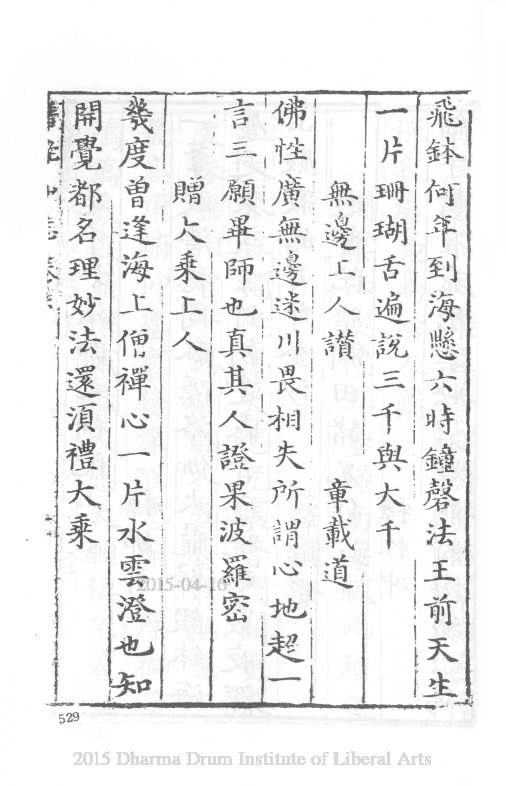 飛鉢何年到海懸六時鐘磬法王前天生
一片珊瑚舌遍說三千與大千
無邊上人讃 章載道
佛性廣無邊迷川畏相失所謂心地超一
言三願畢師也真其人證果波羅密
贈大乘上人
幾度曾逢海上僧禪心一片水雲澄也知
開覺都名理妙法還須禮大乘
529
2015-04-16
2015 Dharma Drum Institute of Liberal Arts